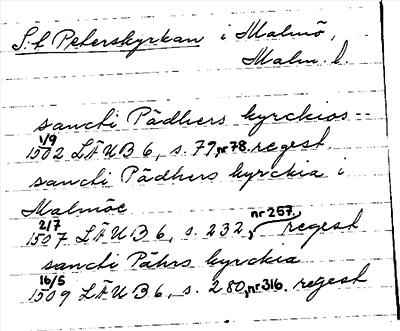 S:t Peterskyrkan i Malmö,
Malm. l.
sancti Pädhers kyrckios--
1/9
1502 LÄUB 6, s. 79, nr 78. regest
sancti Pädhers kyrckia i
Malmöe
2/7 nr 257,
1507 LÄUB 6, s. 232, regest
sancti Pährs kyrckia
16/5
1509 LÄUB 6, s. 280, nr 316. regest